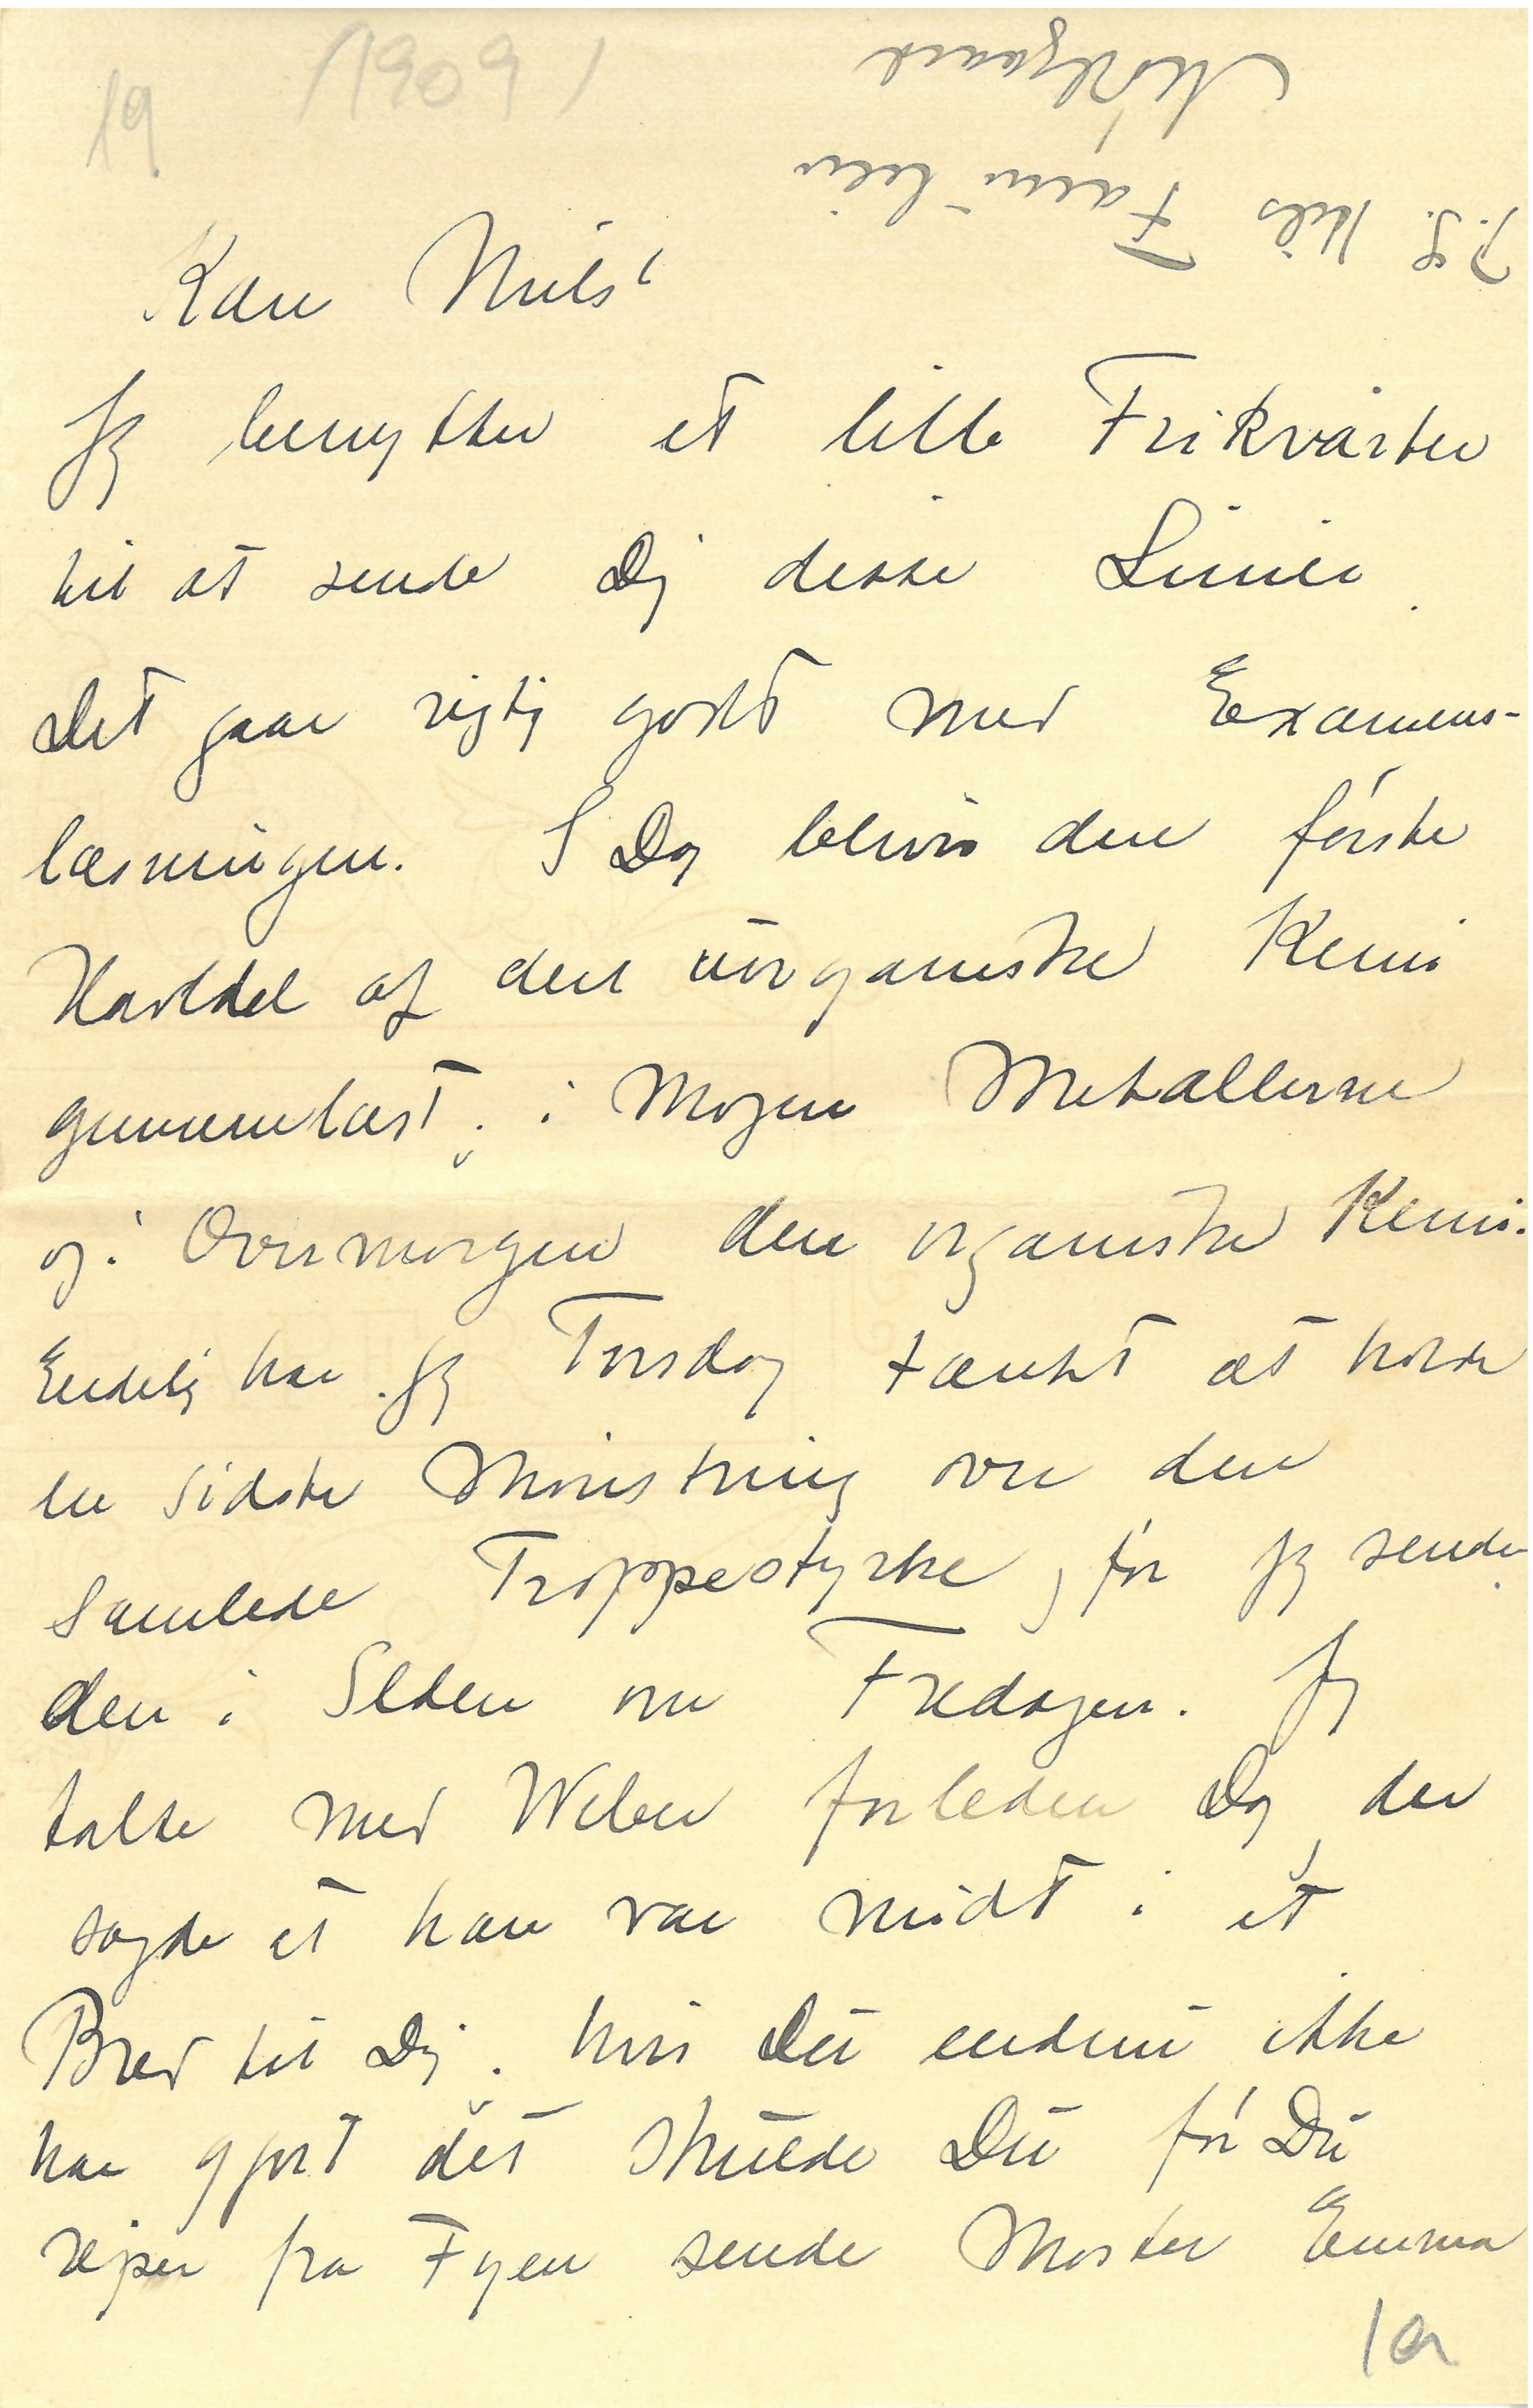 19
(1909)
P.S. Hils Familien
Nørlund
Kære Niels!
Jeg benytter et lille Frikvarter
til at sende Dig disse Linier.
Det gaar rigtig godt med Examens-
læsningen. I Dag bliver den første
Halvdel af den uorganiske Kemi
gennemlæst; i Morgen Metallerne
og i Overmorgen den organiske Kemi.
Endelig har jeg Torsdag tænkt at holde
en sidste Mønstring over den
samlede Troppestyrke, før jeg sender
den i Ilden om Fredagen. Jeg
talte med Weber forleden Dag, der
sagde at han var midt i et
Brev til Dig. hvis Du endnu ikke
har gjort det skulde Du før Du
rejser fra Fyen sende Moster Emma
1a